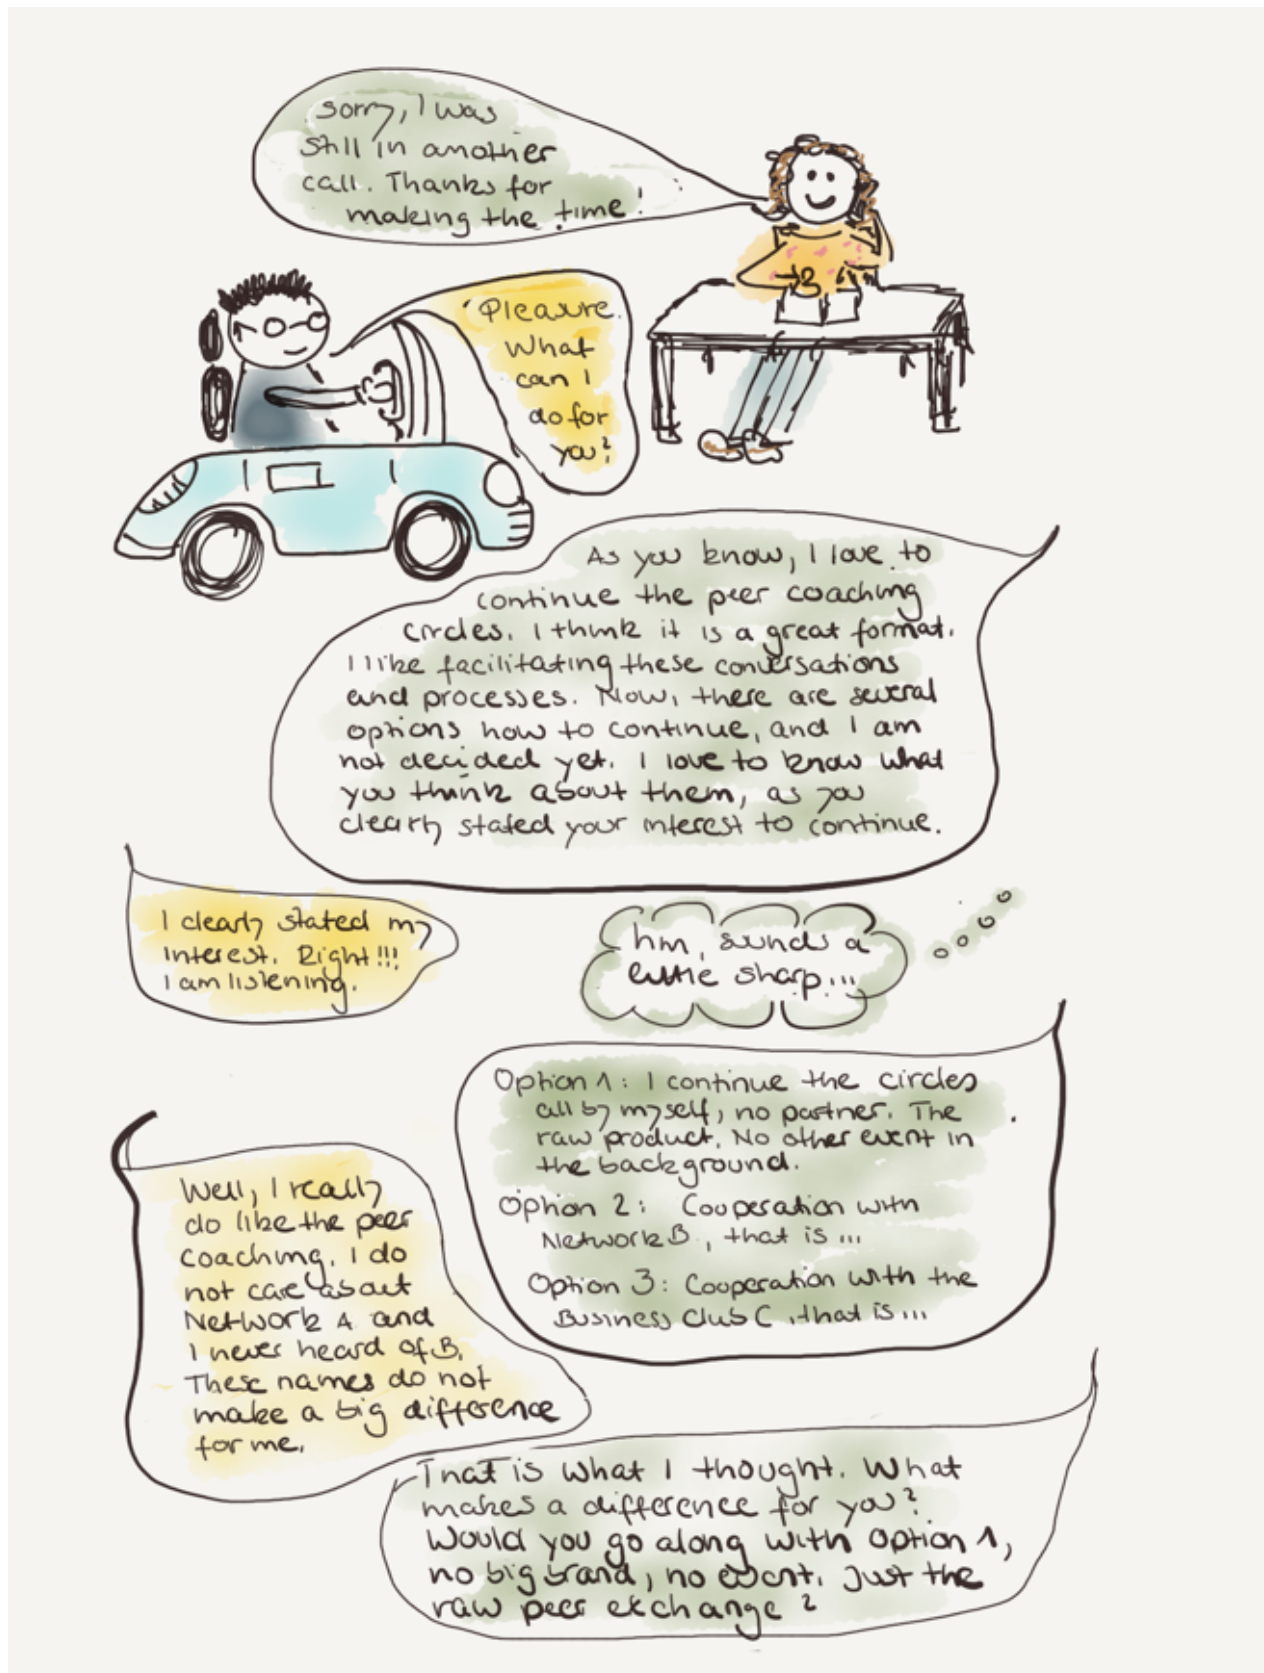 sorry, I was
still in another
call. Thanks for
making the time!
Pleasure.
What
can I
do for
you?
As you know, I love to
continue the peer coaching
circles. I think it is a great format.
I like facilitating these conversations
and processes. Now, there are several
options how to continue, and I am
not decided yet. I love to know what
you think about them, as you
clearly stated your interest to continue.
I clearly stated my
interest. Right!!!
I am listening.
hm, sounds a
little sharp...
Option 1: I continue the circles
all by myself, no partner. The
raw product. No other event in
the background.
Option 2: Cooperation with
Network B, that is ...
Option 3: Cooperation with the
Business Club C, that is ...
Well, I really
do like the peer
coaching. I do
not care about
Network A and
I never heard of B.
These names do not
make a big difference
for me.
That is what I thought. What
makes a difference for you?
Would you go along with Option 1,
no big brand, no event. Just the
raw peer exchange?